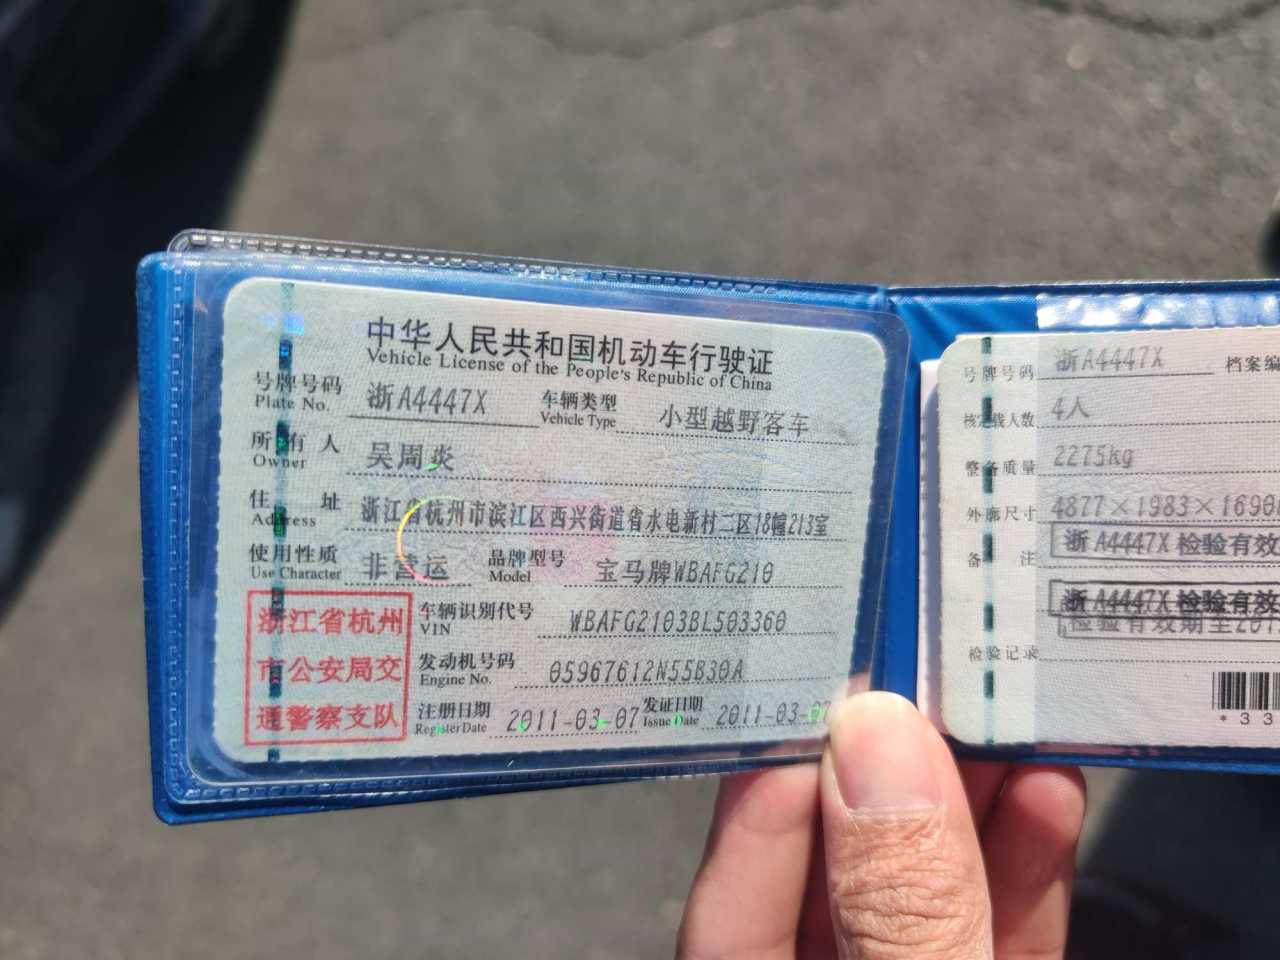 中华人民共和国机动车行驶证
Vehicle License of the People's Republic of China
号牌号码 浙A4447X 车辆类型 小型越野客车
Plate No. Vehicle Type
所有人 吴周炎
Owner
住址 浙江省杭州市滨江区西兴街道省水电新村二区18幢213室
Address
使用性质 非营运 品牌型号 宝马牌WBAFG210
Use Character Model
浙江省杭州
市公安局交
通警察支队
车辆识别代号 WBAFG2103BL503360
VIN
发动机号码 05967612N55B30A
Engine No.
注册日期 2011-03-07 发证日期 2011-03-07
Register Date Issue Date
号牌号码 浙A4447X 档案编
核定载人数 4人
整备质量 2275kg
外廓尺寸 4877×1983×1690
备注 浙A4447X 检验有效
浙A4447X 检验有效
检验有效期至201
检验记录
*33